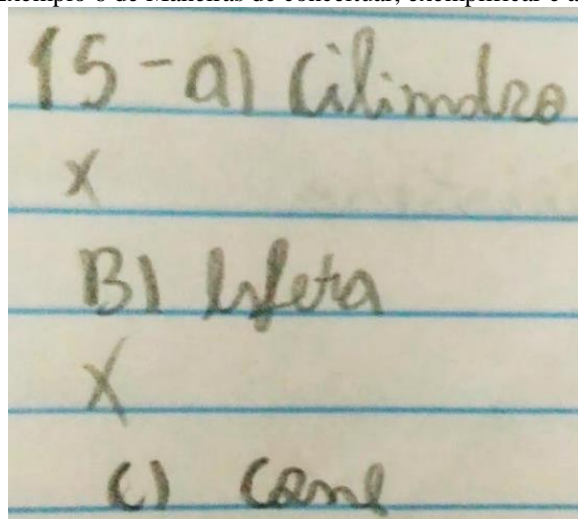 15-a) Cilindro
X
B) Esfera
X
C) Cone